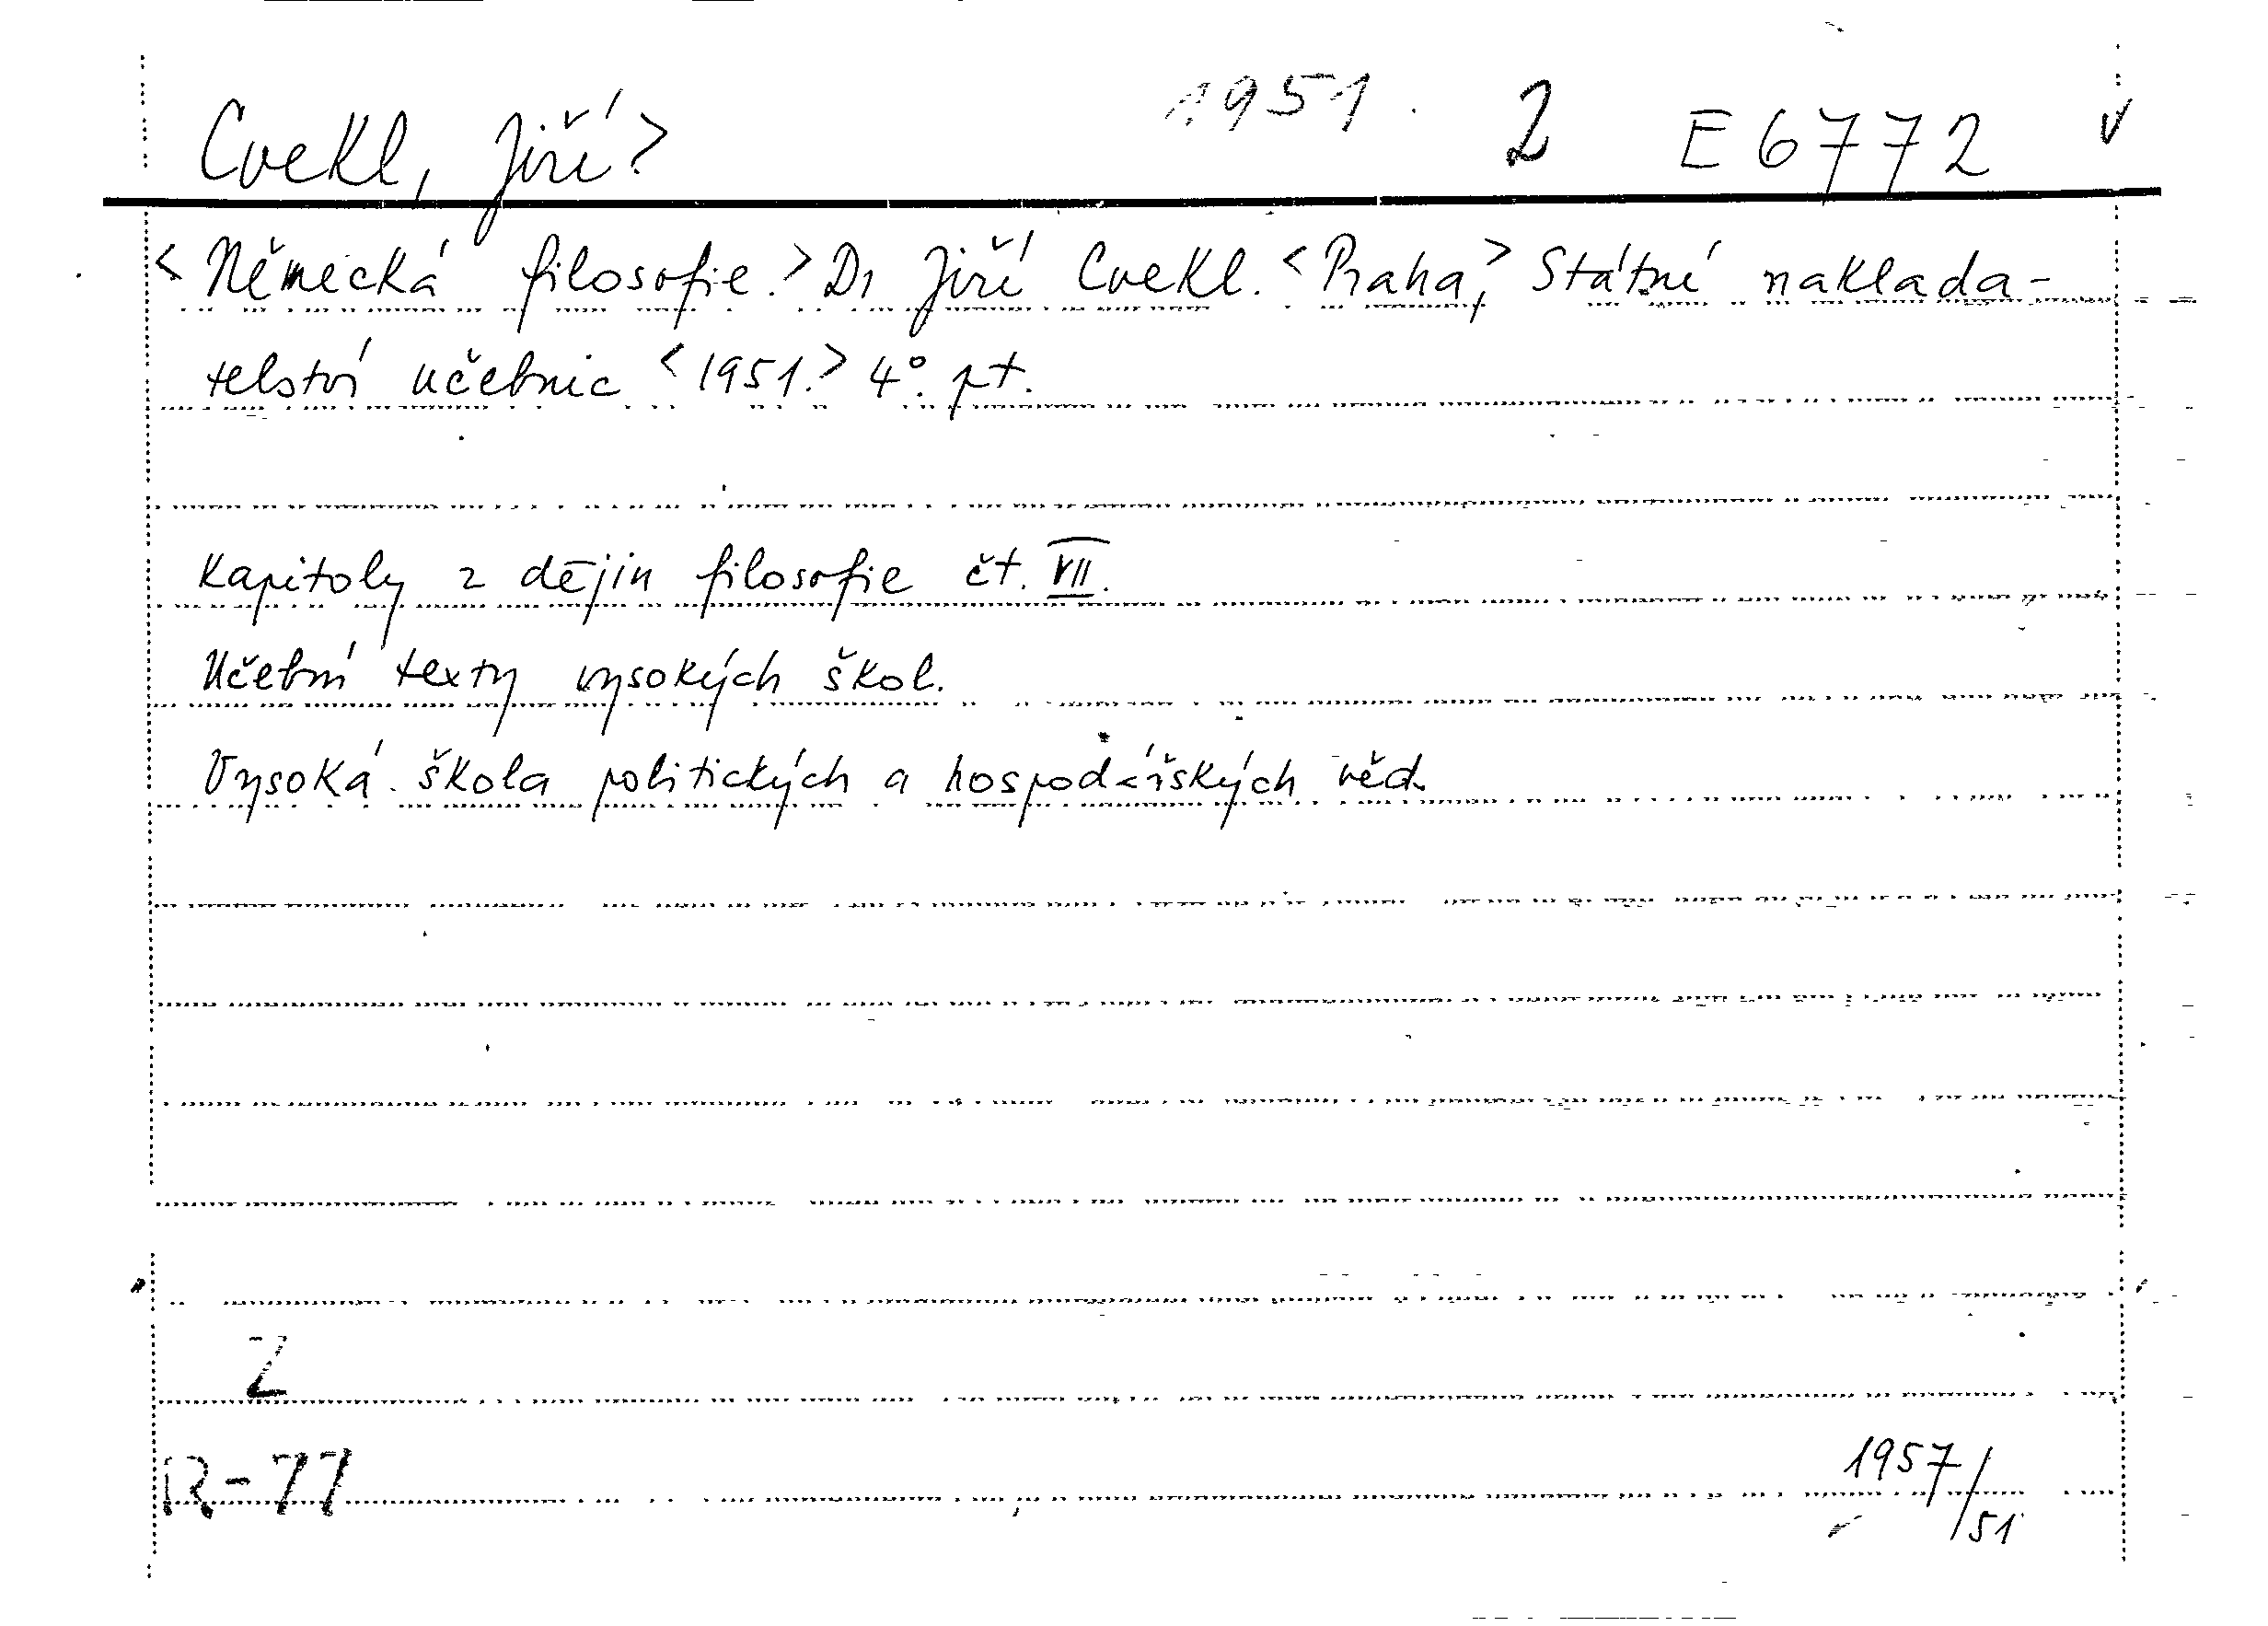 Cvekl, Jiří> 1951. 2 E 6772
<Německá filosofie.> Dr Jiří Cvekl. <Praha,> Státní naklada-
telství učebnic <1951.> 4°. pt.
Kapitoly z dějin filosofie čt. VII.
Učební texty vysokých škol.
Vysoká škola politických a hospodářských věd.
Z
R-77
1957/51